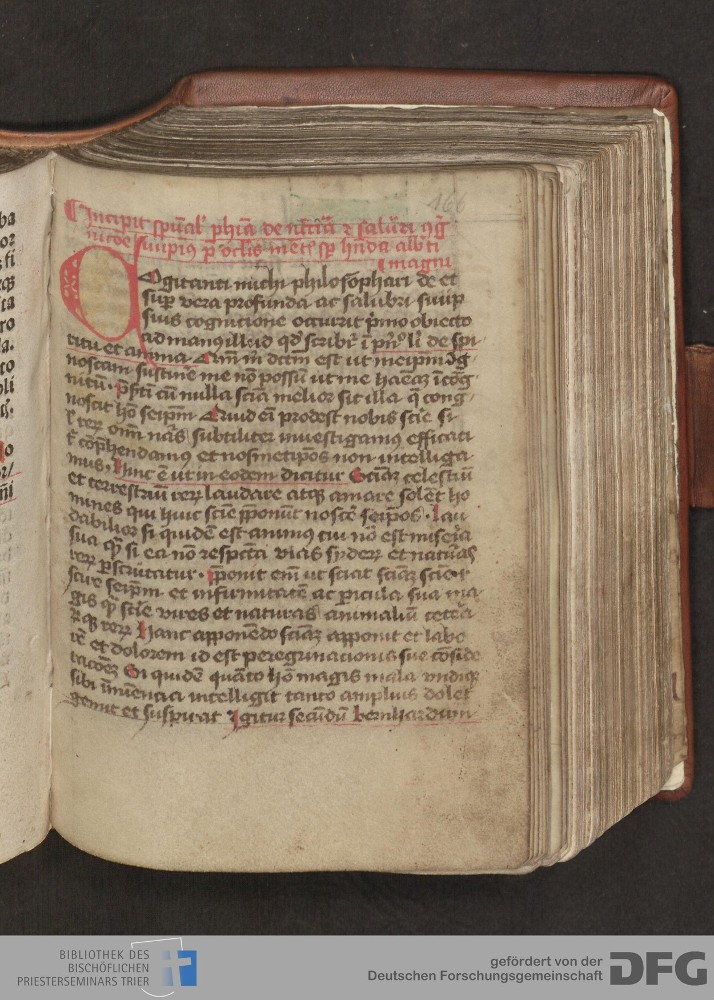 466
Incipit spūal' phīa de
suipsius
magni
Cogitanti michi philosophari de et
sup vera profunda ac salubri suiip
sius cognitione occurrit pīmo obiecto
ad manus illud qd' scribit' ī de spi
ritu et anima dictm est ut meipm
noscam sustinē me nō possū ut me habeā
nitū. cū nulla sciā melior sit illa q̄ cog
noscit hō seipm̄ Quid eī prodest nobis scīe si
omī subtiliter inuestigamus efficati
r̄ cōp̄hendamus et nosmetipos non intelliga
mus. Hinc ē ut in eodem dicitur Sciāz celestiū
et terrestriū rerꝝ laudare atqꝫ amare solēt ho
mines qui huic scīe p̄ponūt nosce seipos. Lau
dabilior si quidē est animus cui nō est miseria
sua qͣ si ea nō respcta vias syderꝝ et naturas
rerꝝ pscrutatur. p̄ponit eī ut sciat sciāz scīe
scire seipm̄ et infirmitatē ac picula sua ma
gis qͣ scīe vires et naturas animaliū
rerꝝ Hanc apponēdo sciāz apponit et labo
rē et dolorem id est peregrinacionis sue cōside
racōeꝫ Si quidē quāto hō magis mala vndiqꝫ
sibi intelligit tanto amplius dolet
gemit et suspirat Igitur secūdū bernhardum
BIBLIOTHEK DES
BISCHÖFLICHEN
PRIESTERSEMINARS TRIER
gefördert von der
Deutschen Forschungsgemeinschaft
DFG